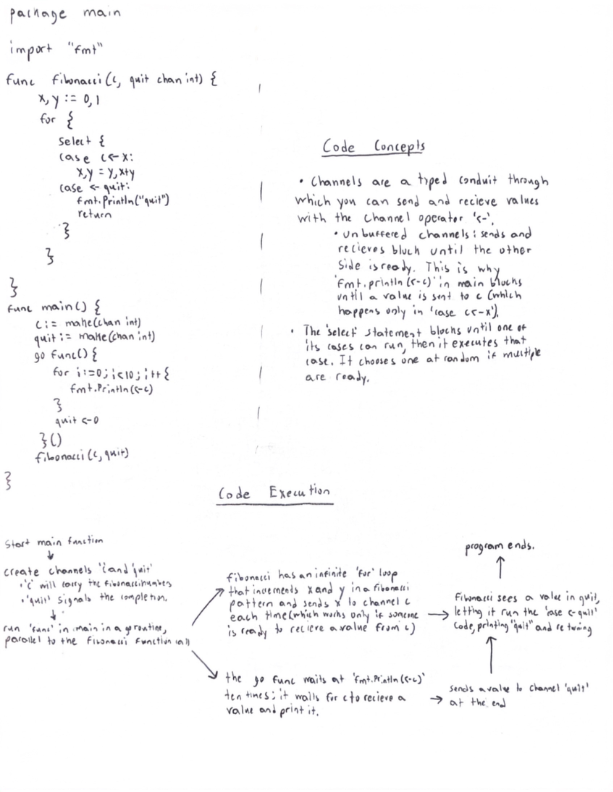 package main
import "fmt"
func fibonacci(c, quit chan int) {
x, y := 0, 1
for {
select {
case c<-x:
x,y = y,x+y
case <-quit:
fmt.Println("quit")
return
}
}
}
func main() {
c := make(chan int)
quit := make(chan int)
go func() {
for i:=0; i<10; i++ {
fmt.Println(<-c)
}
quit <-0
}()
fibonacci(c, quit)
}
Code Concepts
• Channels are a typed conduit through
which you can send and recieve values
with the channel operator '<-'.
• unbuffered channels: sends and
recieves block until the other
side is ready. This is why
'fmt.println(<-c)' in main blocks
until a value is sent to c (which
happens only in 'case c<-x').
• The 'select' statement blocks until one of
its cases can run, then it executes that
case. It chooses one at random if multiple
are ready.
Code Execution
Start main function
create channels 'c' and 'quit'
• 'c' will carry the fibonacci numbers
• 'quit' signals the completion.
run 'func' in main in a goroutine,
parallel to the fibonacci function call
fibonacci has an infinite 'for' loop
that increments x and y in a fibonacci
pattern and sends x to channel c
each time (which works only if someone
is ready to recieve a value from c)
the go func waits at 'fmt.Println(<-c)'
ten times; it waits for c to recieve a
value and print it.
sends a value to channel 'quit'
at the end
Fibonacci sees a value in quit,
letting it run the 'case <-quit'
code, printing "quit" and returning
program ends.